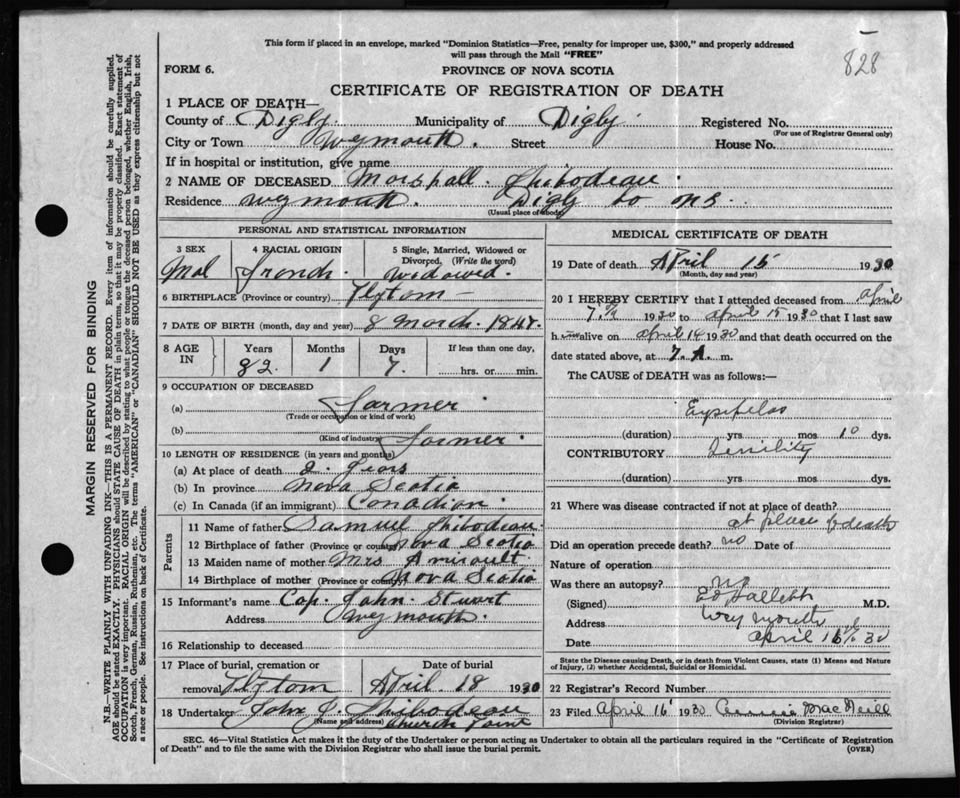 828
This form if placed in an envelope, marked "Dominion Statistics—Free, penalty for improper use, $300," and properly addressed
will pass through the Mail "FREE"
FORM 6.
PROVINCE OF NOVA SCOTIA
CERTIFICATE OF REGISTRATION OF DEATH
1 PLACE OF DEATH—
County of Digby. Municipality of Digby. Registered No.
(For use of Registrar General only)
City or Town Weymouth. Street House No.
If in hospital or institution, give name
2 NAME OF DECEASED Marshall. Thibodeau.
Residence Weymouth. Digby Co N S.
(Usual place of abode)
PERSONAL AND STATISTICAL INFORMATION
3 SEX
Mal
4 RACIAL ORIGIN
French.
5 Single, Married, Widowed or
Divorced, (Write the word)
Widowed.
6 BIRTHPLACE (Province or country)
7 DATE OF BIRTH (month, day and year) 8 March. 1847.
8 AGE IN
Years Months Days If less than one day,
82. 1 7. hrs. or min.
9 OCCUPATION OF DECEASED
(a) Farmer
(Trade or occupation or kind of work)
(b) Farmer.
(Kind of industry)
10 LENGTH OF RESIDENCE (in years and months)
(a) At place of death 2. Years
(b) In province Nova Scotia
(c) In Canada (if an immigrant) Canadian.
Parents
11 Name of father Samuel Thibodeau.
12 Birthplace of father (Province or country) Nova Scotia
13 Maiden name of mother Mrs Amirault.
14 Birthplace of mother (Province or country) Nova Scotia
15 Informant's name Cap. John. Stuart
Address Weymouth.
16 Relationship to deceased
17 Place of burial, cremation or Date of burial
removal April. 18 1930
18 Undertaker John J. Thibodeau
(Name and address) Church Point
MEDICAL CERTIFICATE OF DEATH
19 Date of death April 15 1930
(Month, day and year)
20 I HEREBY CERTIFY that I attended deceased from April
7th 1930 to April 15 1930 that I last saw
h im alive on April 14 1930 and that death occurred on the
date stated above, at 7. A. m.
The CAUSE of DEATH was as follows:—
Erysipelas
(duration) yrs mos 10 dys.
CONTRIBUTORY Senility
(duration) yrs. mos dys.
21 Where was disease contracted if not at place of death?
at place of death
Did an operation precede death? no Date of
Nature of operation
Was there an autopsy? no
(Signed) M.D.
Address Weymouth
Date April 15/30
State the Disease causing Death, or in death from Violent Causes, state (1) Means and Nature
of Injury, (2) whether Accidental, Suicidal or Homicidal.
22 Registrar's Record Number
23 Filed April 16 1930 MacNeill
(Division Registrar)
SEC. 46—Vital Statistics Act makes it the duty of the Undertaker or person acting as Undertaker to obtain all the particulars required in the "Certificate of Registration
of Death" and to file the same with the Division Registrar who shall issue the burial permit.
(OVER)
MARGIN RESERVED FOR BINDING
N.B.—WRITE PLAINLY WITH UNFADING INK—THIS IS A PERMANENT RECORD. Every item of information should be carefully supplied.
AGE should be stated EXACTLY. PHYSICIANS should STATE CAUSE OF DEATH in plain terms, so that it may be properly classified. Exact statement of
OCCUPATION is very important. RACIAL ORIGIN will be described by stating to what people or tongue the deceased person belonged, whether English, Irish,
Scotch, French, German, Russian, Ruthenian, etc. The terms "AMERICAN" or "CANADIAN" SHOULD NOT BE USED as they express citizenship but not
a race or people. See instructions on back of Certificate.